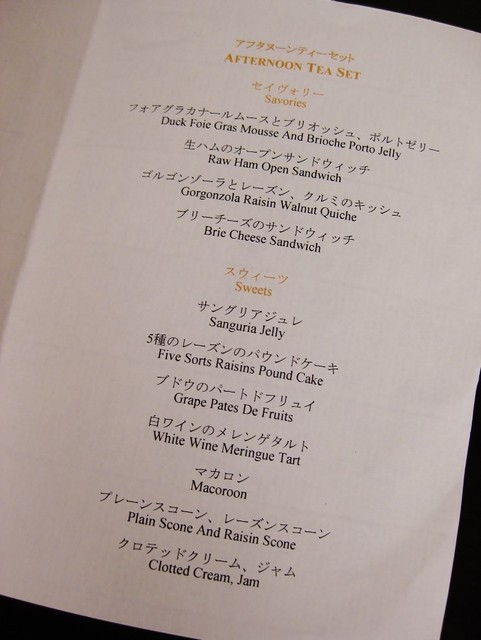 アフタヌーンティーセット
AFTERNOON TEA SET
セイヴォリー
Savories
フォアグラカナールムースとブリオッシュ、ポルトゼリー
Duck Foie Gras Mousse And Brioche Porto Jelly
生ハムのオープンサンドウィッチ
Raw Ham Open Sandwich
ゴルゴンゾーラとレーズン、クルミのキッシュ
Gorgonzola Raisin Walnut Quiche
ブリーチーズのサンドウィッチ
Brie Cheese Sandwich
スウィーツ
Sweets
サングリアジュレ
Sanguria Jelly
5種のレーズンのパウンドケーキ
Five Sorts Raisins Pound Cake
ブドウのパートドフリュイ
Grape Pates De Fruits
白ワインのメレンゲタルト
White Wine Meringue Tart
マカロン
Macoroon
プレーンスコーン、レーズンスコーン
Plain Scone And Raisin Scone
クロテッドクリーム、ジャム
Clotted Cream, Jam